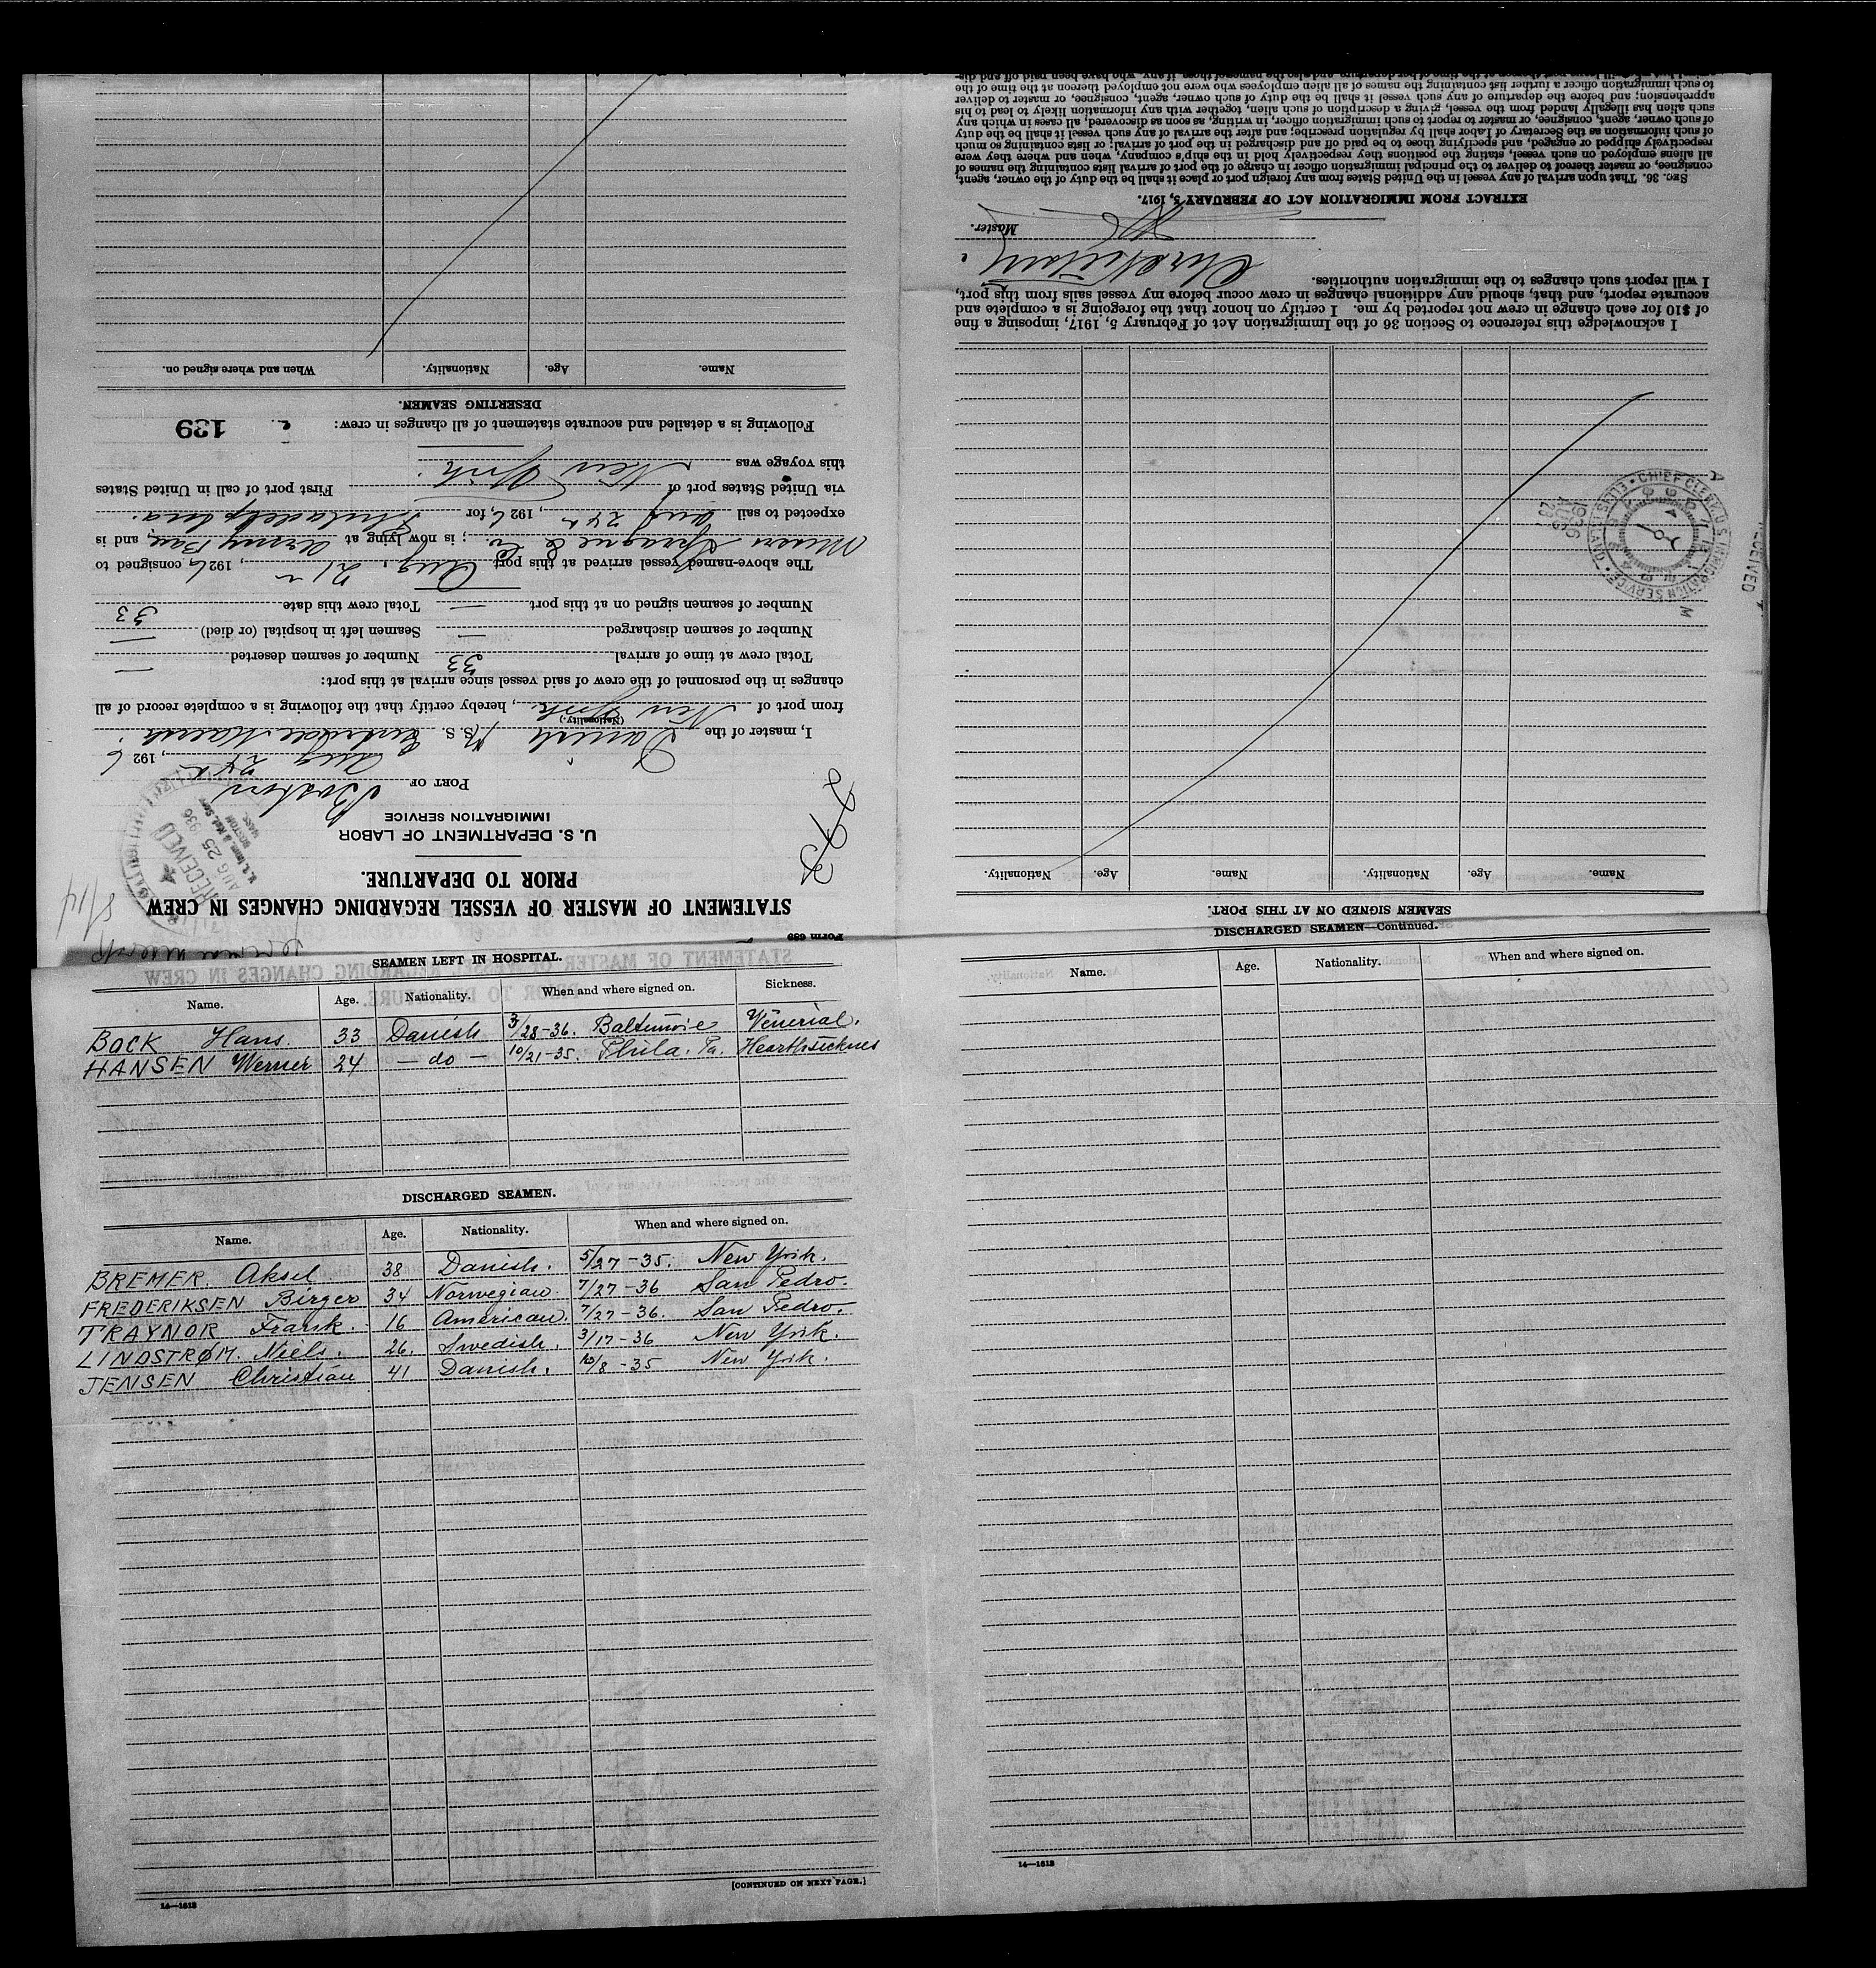 SEAMEN LEFT IN HOSPITAL.
Name. Age. Nationality. When and where signed on. Sickness.
BOCK Hans. 33 Danish 3/28-36. Baltimore Venerial.
HANSEN Werner 24 — do — 10/21-35. Phila. Pa. Hearthsicknes
DISCHARGED SEAMEN.
Name. Age. Nationality. When and where signed on.
BREMER. Aksel 38 Danish. 5/27-35. New York.
FREDERIKSEN Birger 34 Norwegian. 7/27-36 San Pedro.
TRAYNOR Frank. 16 American. 7/27-36. San Pedro.
LINDSTRØM. Niels. 26. Swedish. 3/17-36 New York.
JENSEN Christian 41 Danish. 10/8-35 New York.
[CONTINUED ON NEXT PAGE.]
14—1613
DISCHARGED SEAMEN—Continued.
Name. Age. Nationality. When and where signed on.
14—1613
Form 689
STATEMENT OF MASTER OF VESSEL REGARDING CHANGES IN CREW
PRIOR TO DEPARTURE.
U. S. DEPARTMENT OF LABOR
IMMIGRATION SERVICE
RECEIVED
AUG 25 1936
BOSTON
MASS.
PORT OF Boston
Aug 24, 1926
I, master of the Danish M/S. S. Gertrude Maersk,
(Nationality.)
from port of New York, hereby certify that the following is a complete record of all
changes in the personnel of the crew of said vessel since arrival at this port:
Total crew at time of arrival 33 Number of seamen deserted —
Number of seamen discharged — Seamen left in hospital (or died) —
Number of seamen signed on at this port — Total crew this date 33
The above-named vessel arrived at this port Aug, 21, 1926, consigned to
Messrs Sprague & Co.; is now lying at Army Base, and is
expected to sail Aug 24, 1926, for Philadelphia.
via United States port of — First port of call in United States
this voyage was New York.
Following is a detailed and accurate statement of all changes in crew:
139
DESERTING SEAMEN.
Name. Age. Nationality. When and where signed on.
SEAMEN SIGNED ON AT THIS PORT.
Name. Age. Nationality. Name. Age. Nationality.
CHIEF CLERK U. S. IMMIGRATION SERVICE • ELLIS ISLAND •
1936
AUG
RECEIVED
I acknowledge this reference to Section 36 of the Immigration Act of February 5, 1917, imposing a fine
of $10 for each change in crew not reported by me. I certify on honor that the foregoing is a complete and
accurate report, and that, should any additional changes in crew occur before my vessel sails from this port,
I will report such changes to the immigration authorities.
Master.
EXTRACT FROM IMMIGRATION ACT OF FEBRUARY 5, 1917.
SEC. 36. That upon arrival of any vessel in the United States from any foreign port or place it shall be the duty of the owner, agent,
consignee, or master thereof to deliver to the principal immigration officer in charge of the port of arrival lists containing the names of
all aliens employed on such vessel, stating the positions they respectively hold in the ship's company, when and where they were
respectively shipped or engaged, and specifying those to be paid off and discharged in the port of arrival; or lists containing so much
of such information as the Secretary of Labor shall by regulation prescribe; and after the arrival of any such vessel it shall be the duty
of such owner, agent, consignee, or master to report to such immigration officer, in writing, as soon as discovered, all cases in which any
such alien has illegally landed from the vessel, giving a description of such alien, together with any information likely to lead to his
apprehension; and before the departure of any such vessel it shall be the duty of such owner, agent, consignee, or master to deliver
to such immigration officer a further list containing the names of all alien employees who were not employed thereon at the time of the